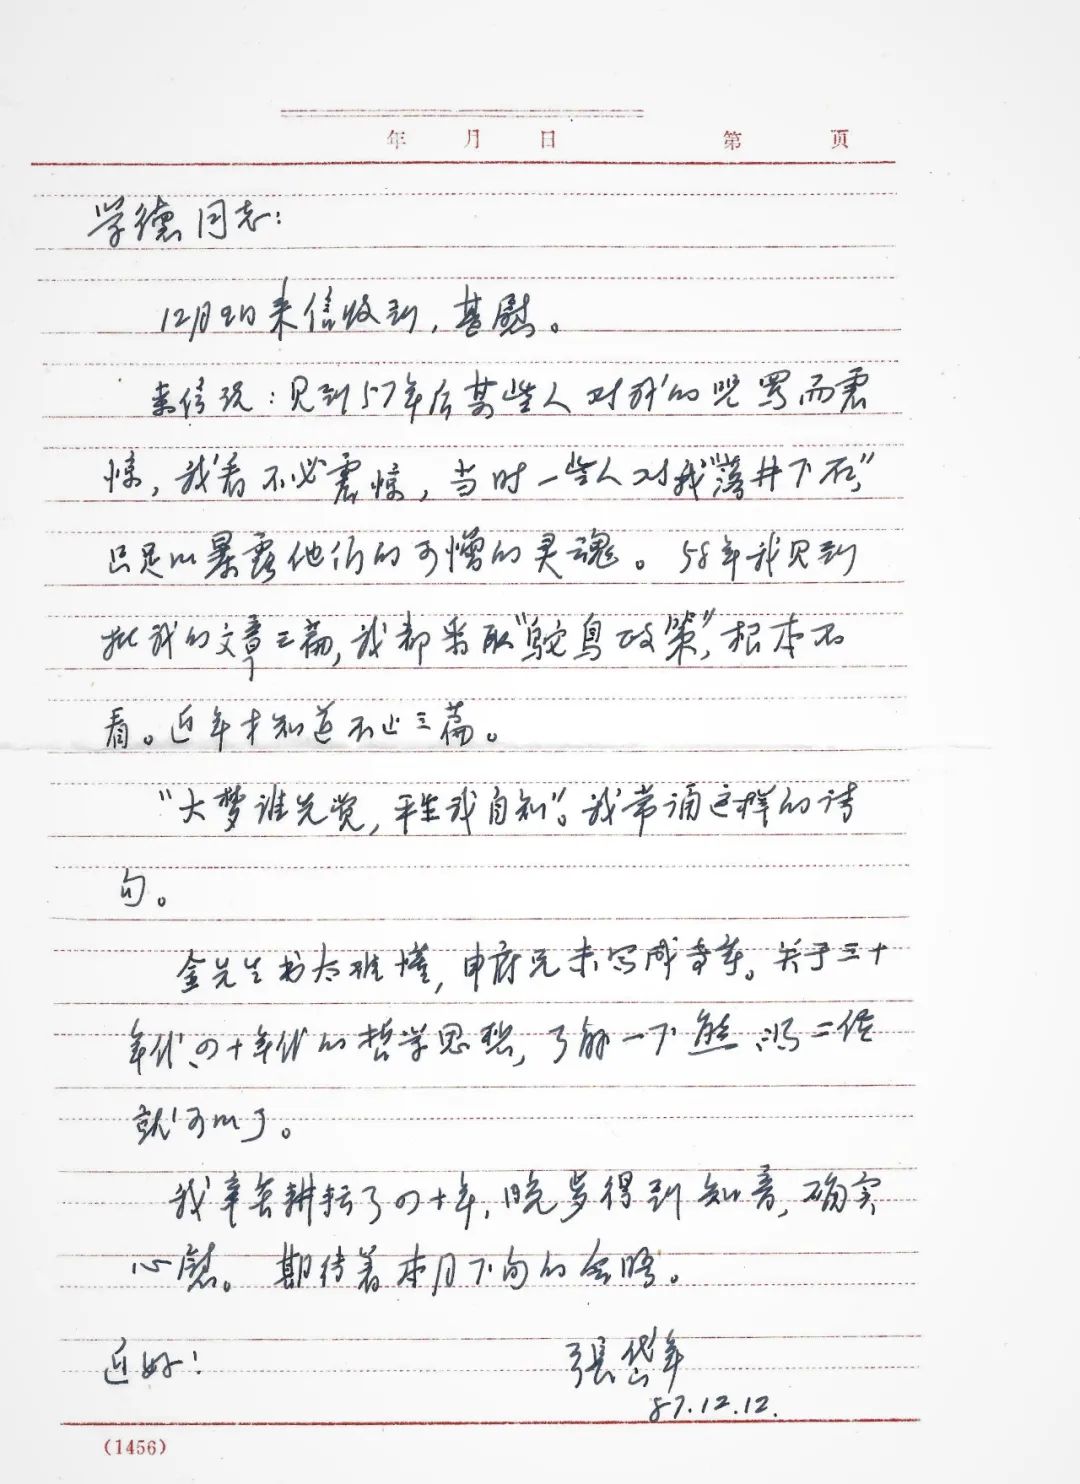 年 月 日 第 页
学德同志：
12月9日来信收到，甚慰。
来信说：见到57年后某些人对我的咒骂而震
惊，我看不必震惊，当时一些人对我“落井下石”，
只足以暴露他们的可憎的灵魂。58年我见到
批我的文章三篇，我都采取“鸵鸟政策”，根本不
看。近年才知道不止三篇。
“大梦谁先觉，平生我自知”。我常诵这样的诗
句。
金先生书太难懂，申府兄未写成专章。关于三十
年代、四十年代的哲学思想，了解一下熊、冯二位
就可以了。
我辛苦耕耘了四十年，晚岁得到知音，确实
心慰。期待着本月下旬的会晤。
近好！ 張岱年
87.12.12.
(1456)